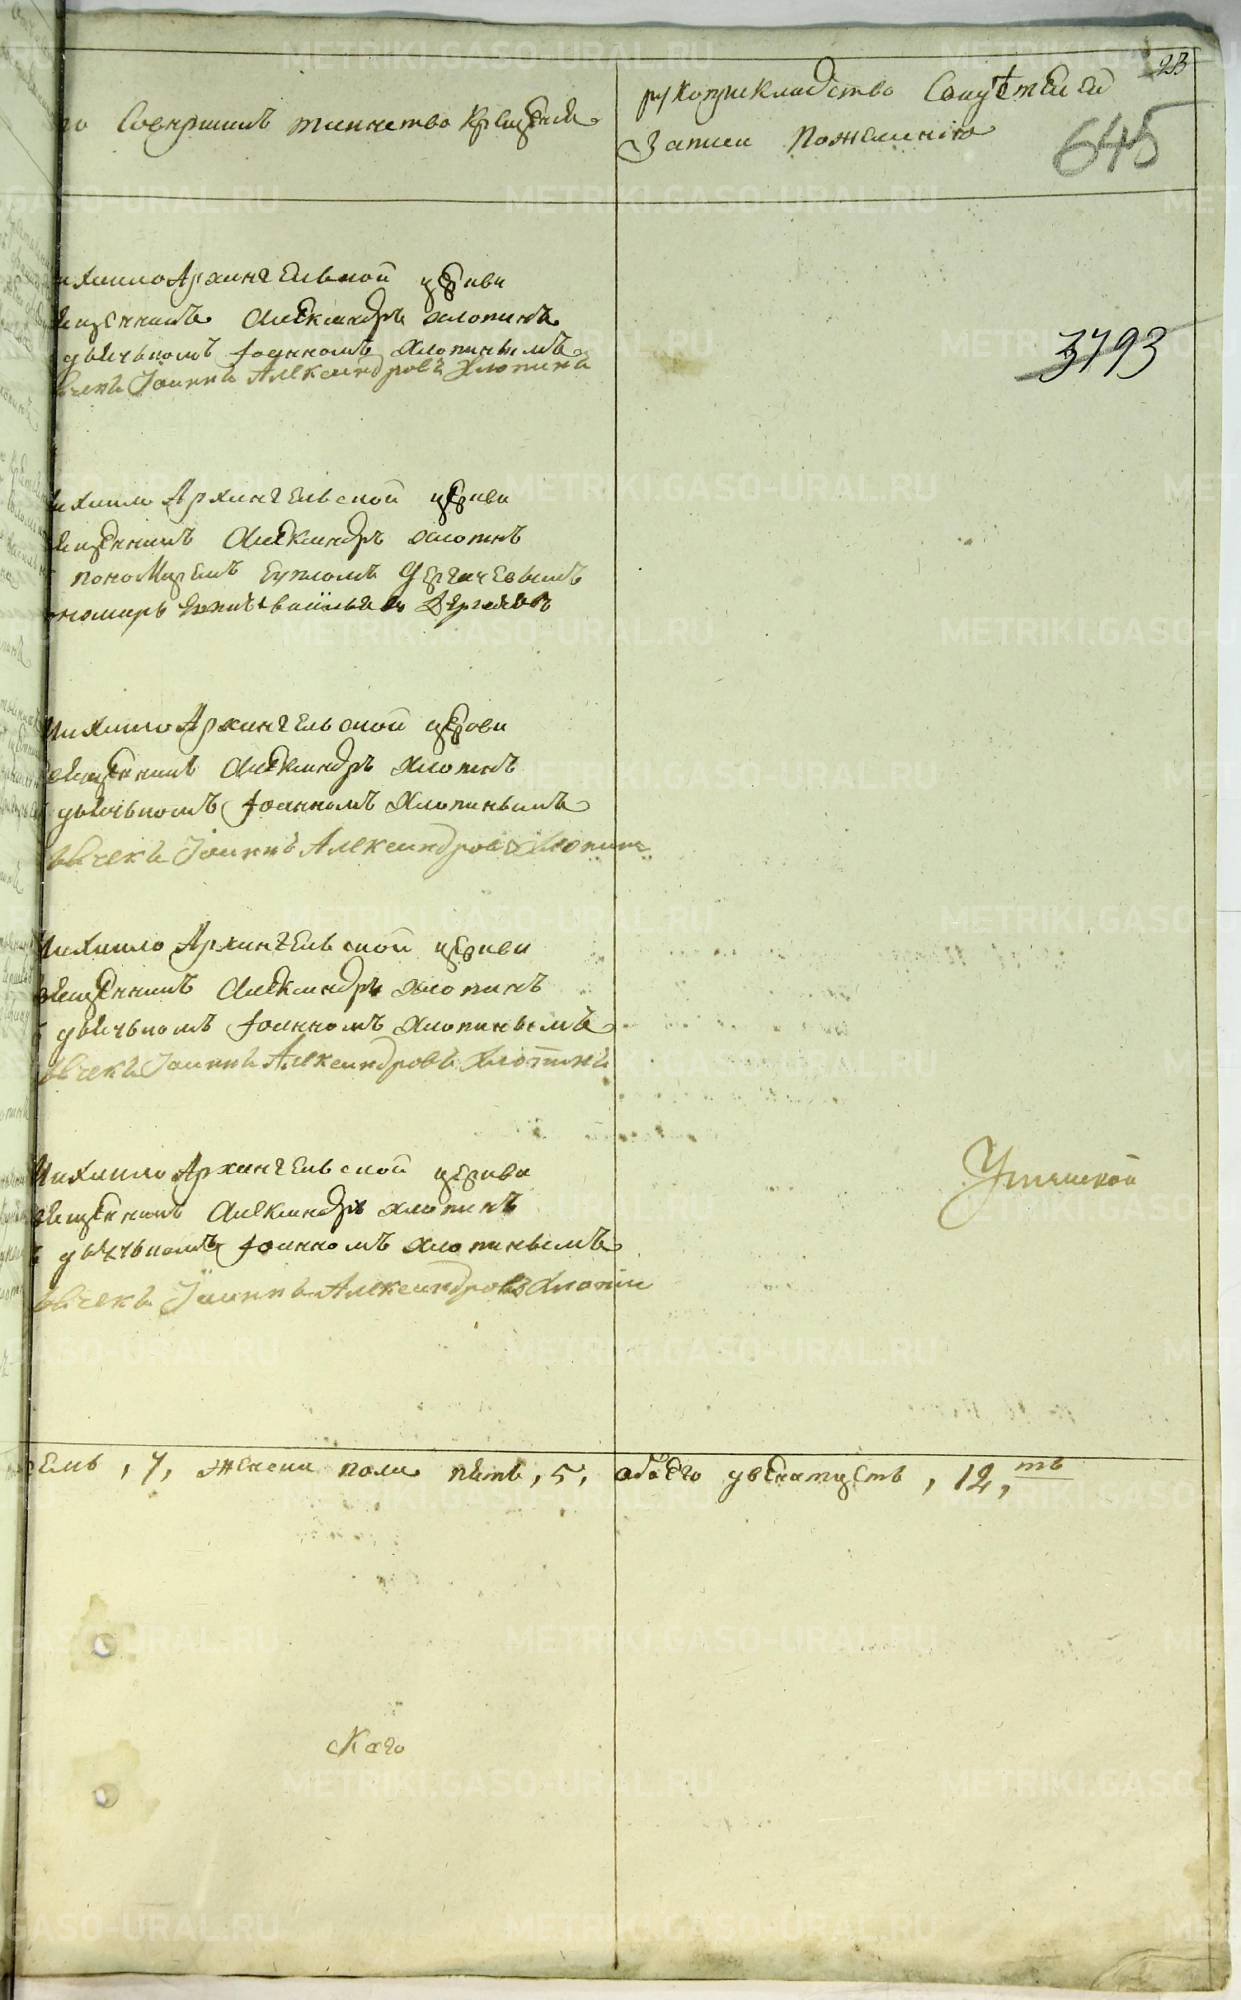 23
645
то Совершилъ таинство Крещенія
рукоприкладство Свидѣтелей
Записи Пожеланію
3793
ихаило Архангельской церкви
вященникъ Александръ Хлопинъ
дьячькомъ Іоанномъ Хлопинымъ
ячекъ Іоаннъ Александровъ Хлопинъ
ихаило Архангельской церкви
вященникъ Александръ Хлопинъ
пономаремъ Дергачевымъ
ономарь
Михаило Архангельской церкови
священникъ Александръ Хлопинъ
дьячькомъ Іоанномъ Хлопинымъ
дьячекъ Іоаннъ Александровъ Хлопинъ
Михаило Архангельской церкви
вященникъ Александръ Хлопинъ
дьячькомъ Іоанномъ Хлопинымъ
дьячекъ Іоаннъ Александровъ Хлопинъ
Михаило Архангельской церкви
вященникъ Александръ Хлопинъ
дьячькомъ Іоанномъ Хлопинымъ
дьячекъ Іоаннъ Александровъ Хлопин
семь, 7, женска пола пять, 5, обоего двенатцеть, 12, ть
скаго
METRIKI.GASO-URAL.RU